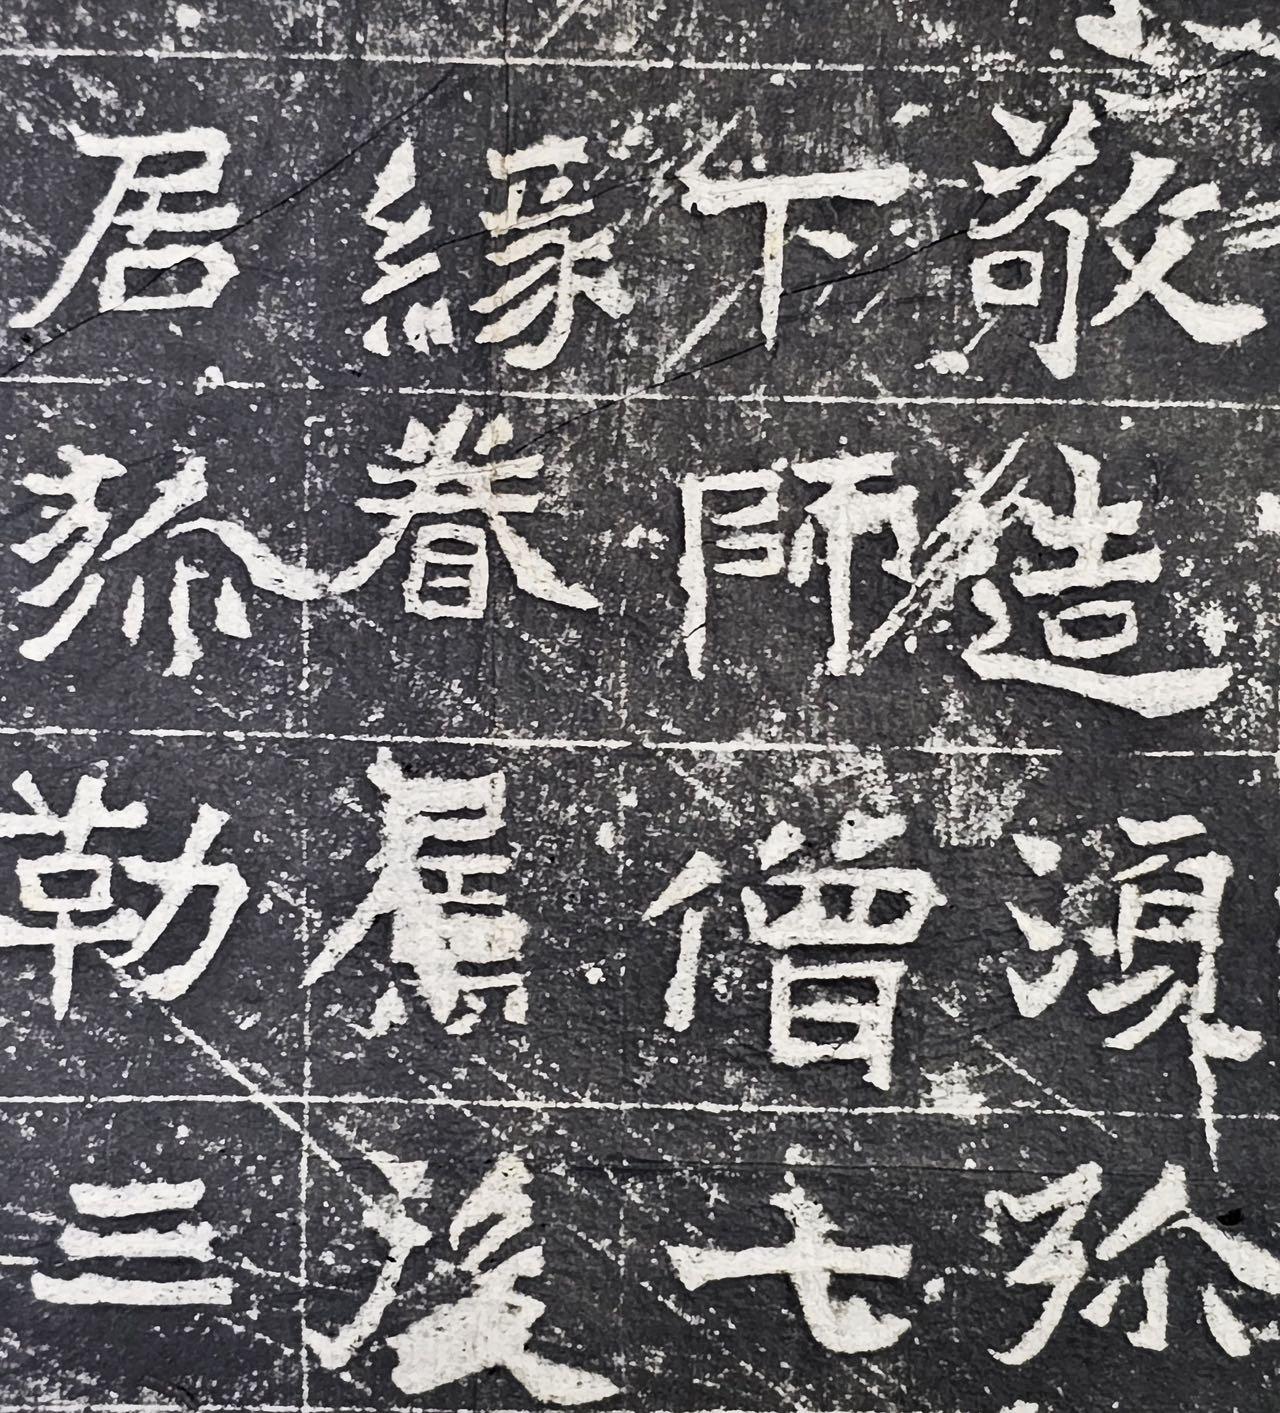 敬造湏弥
下師僧七
緣眷屬後
居弥勒三